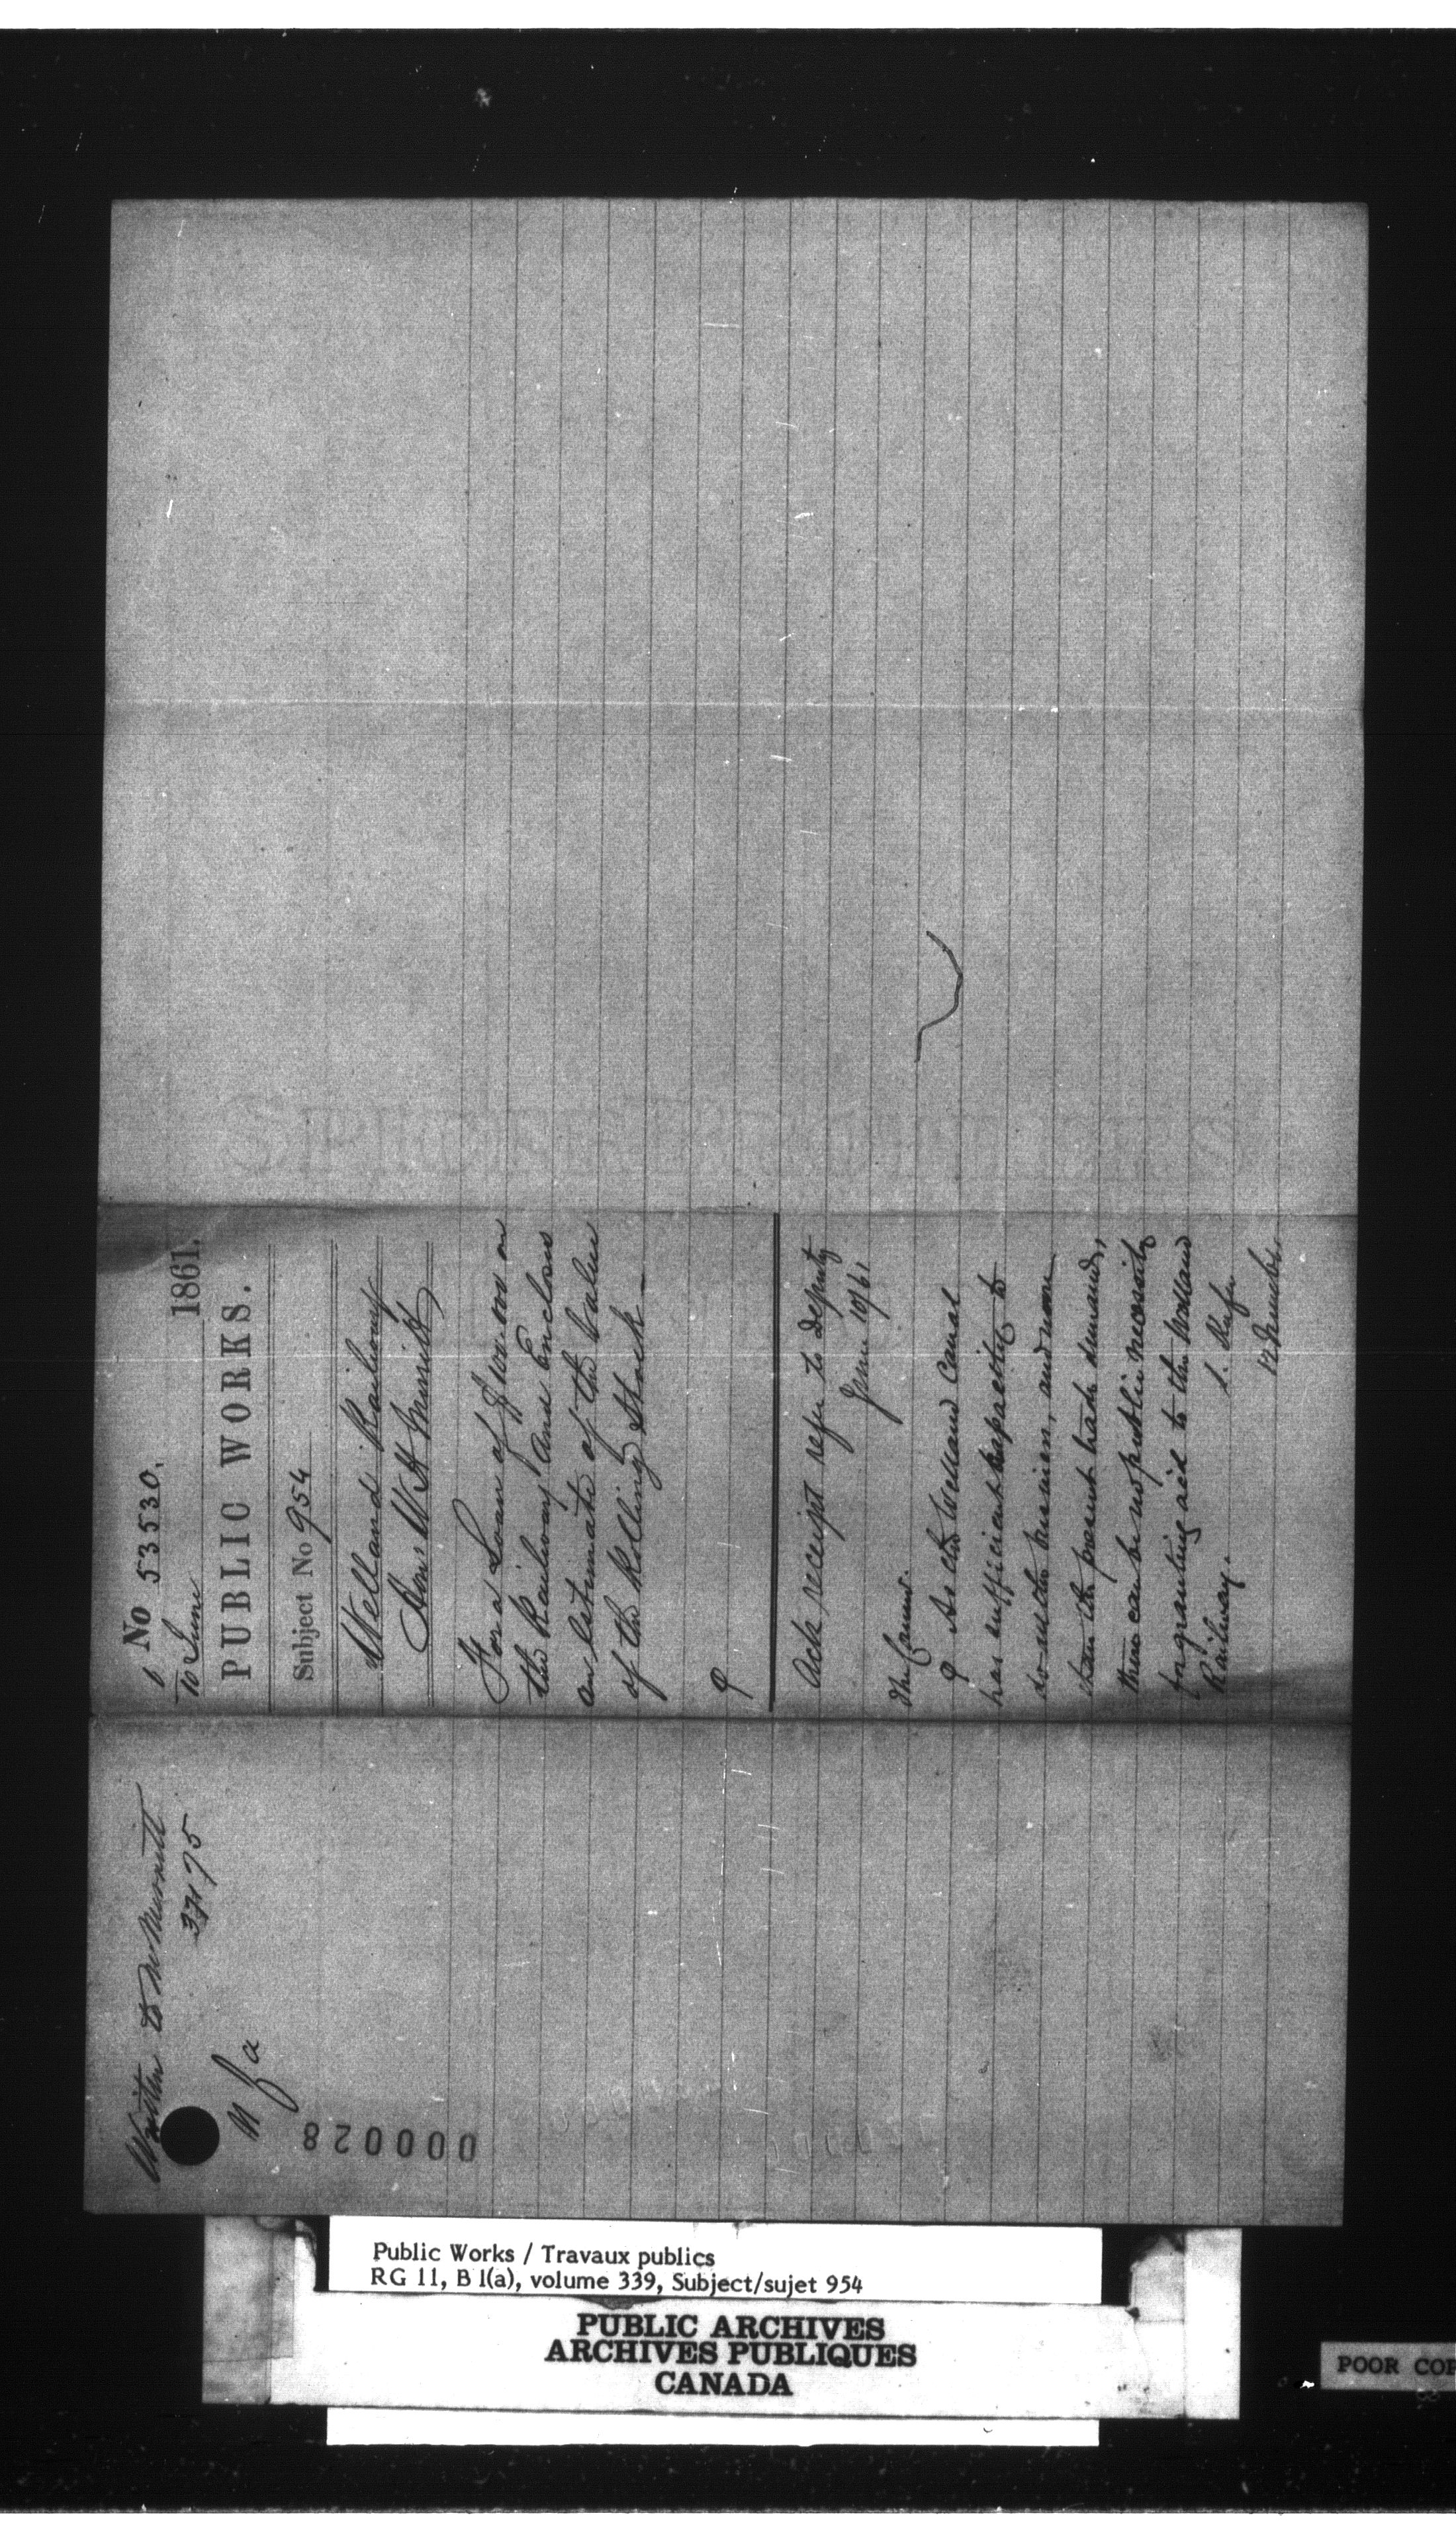 No 53530.
10 June 1861.
PUBLIC WORKS.
Subject No 954
Welland Railway
Hon W H Merritt
For a Loan of on
the Railway and Encloses
an Estimate of the value
of the Rolling Stock
Ack receipt refer to Deputy
June 10/61
As the Welland Canal
has sufficient capacity to
do all the business, and more
than the present trade demands,
there can be no public necessity
for granting aid to the Welland
Railway.
Written to Mr Merritt
37175
n f a
000028
Public Works / Travaux publics
RG 11, B 1(a), volume 339, Subject/sujet 954
PUBLIC ARCHIVES
ARCHIVES PUBLIQUES
CANADA
POOR COP